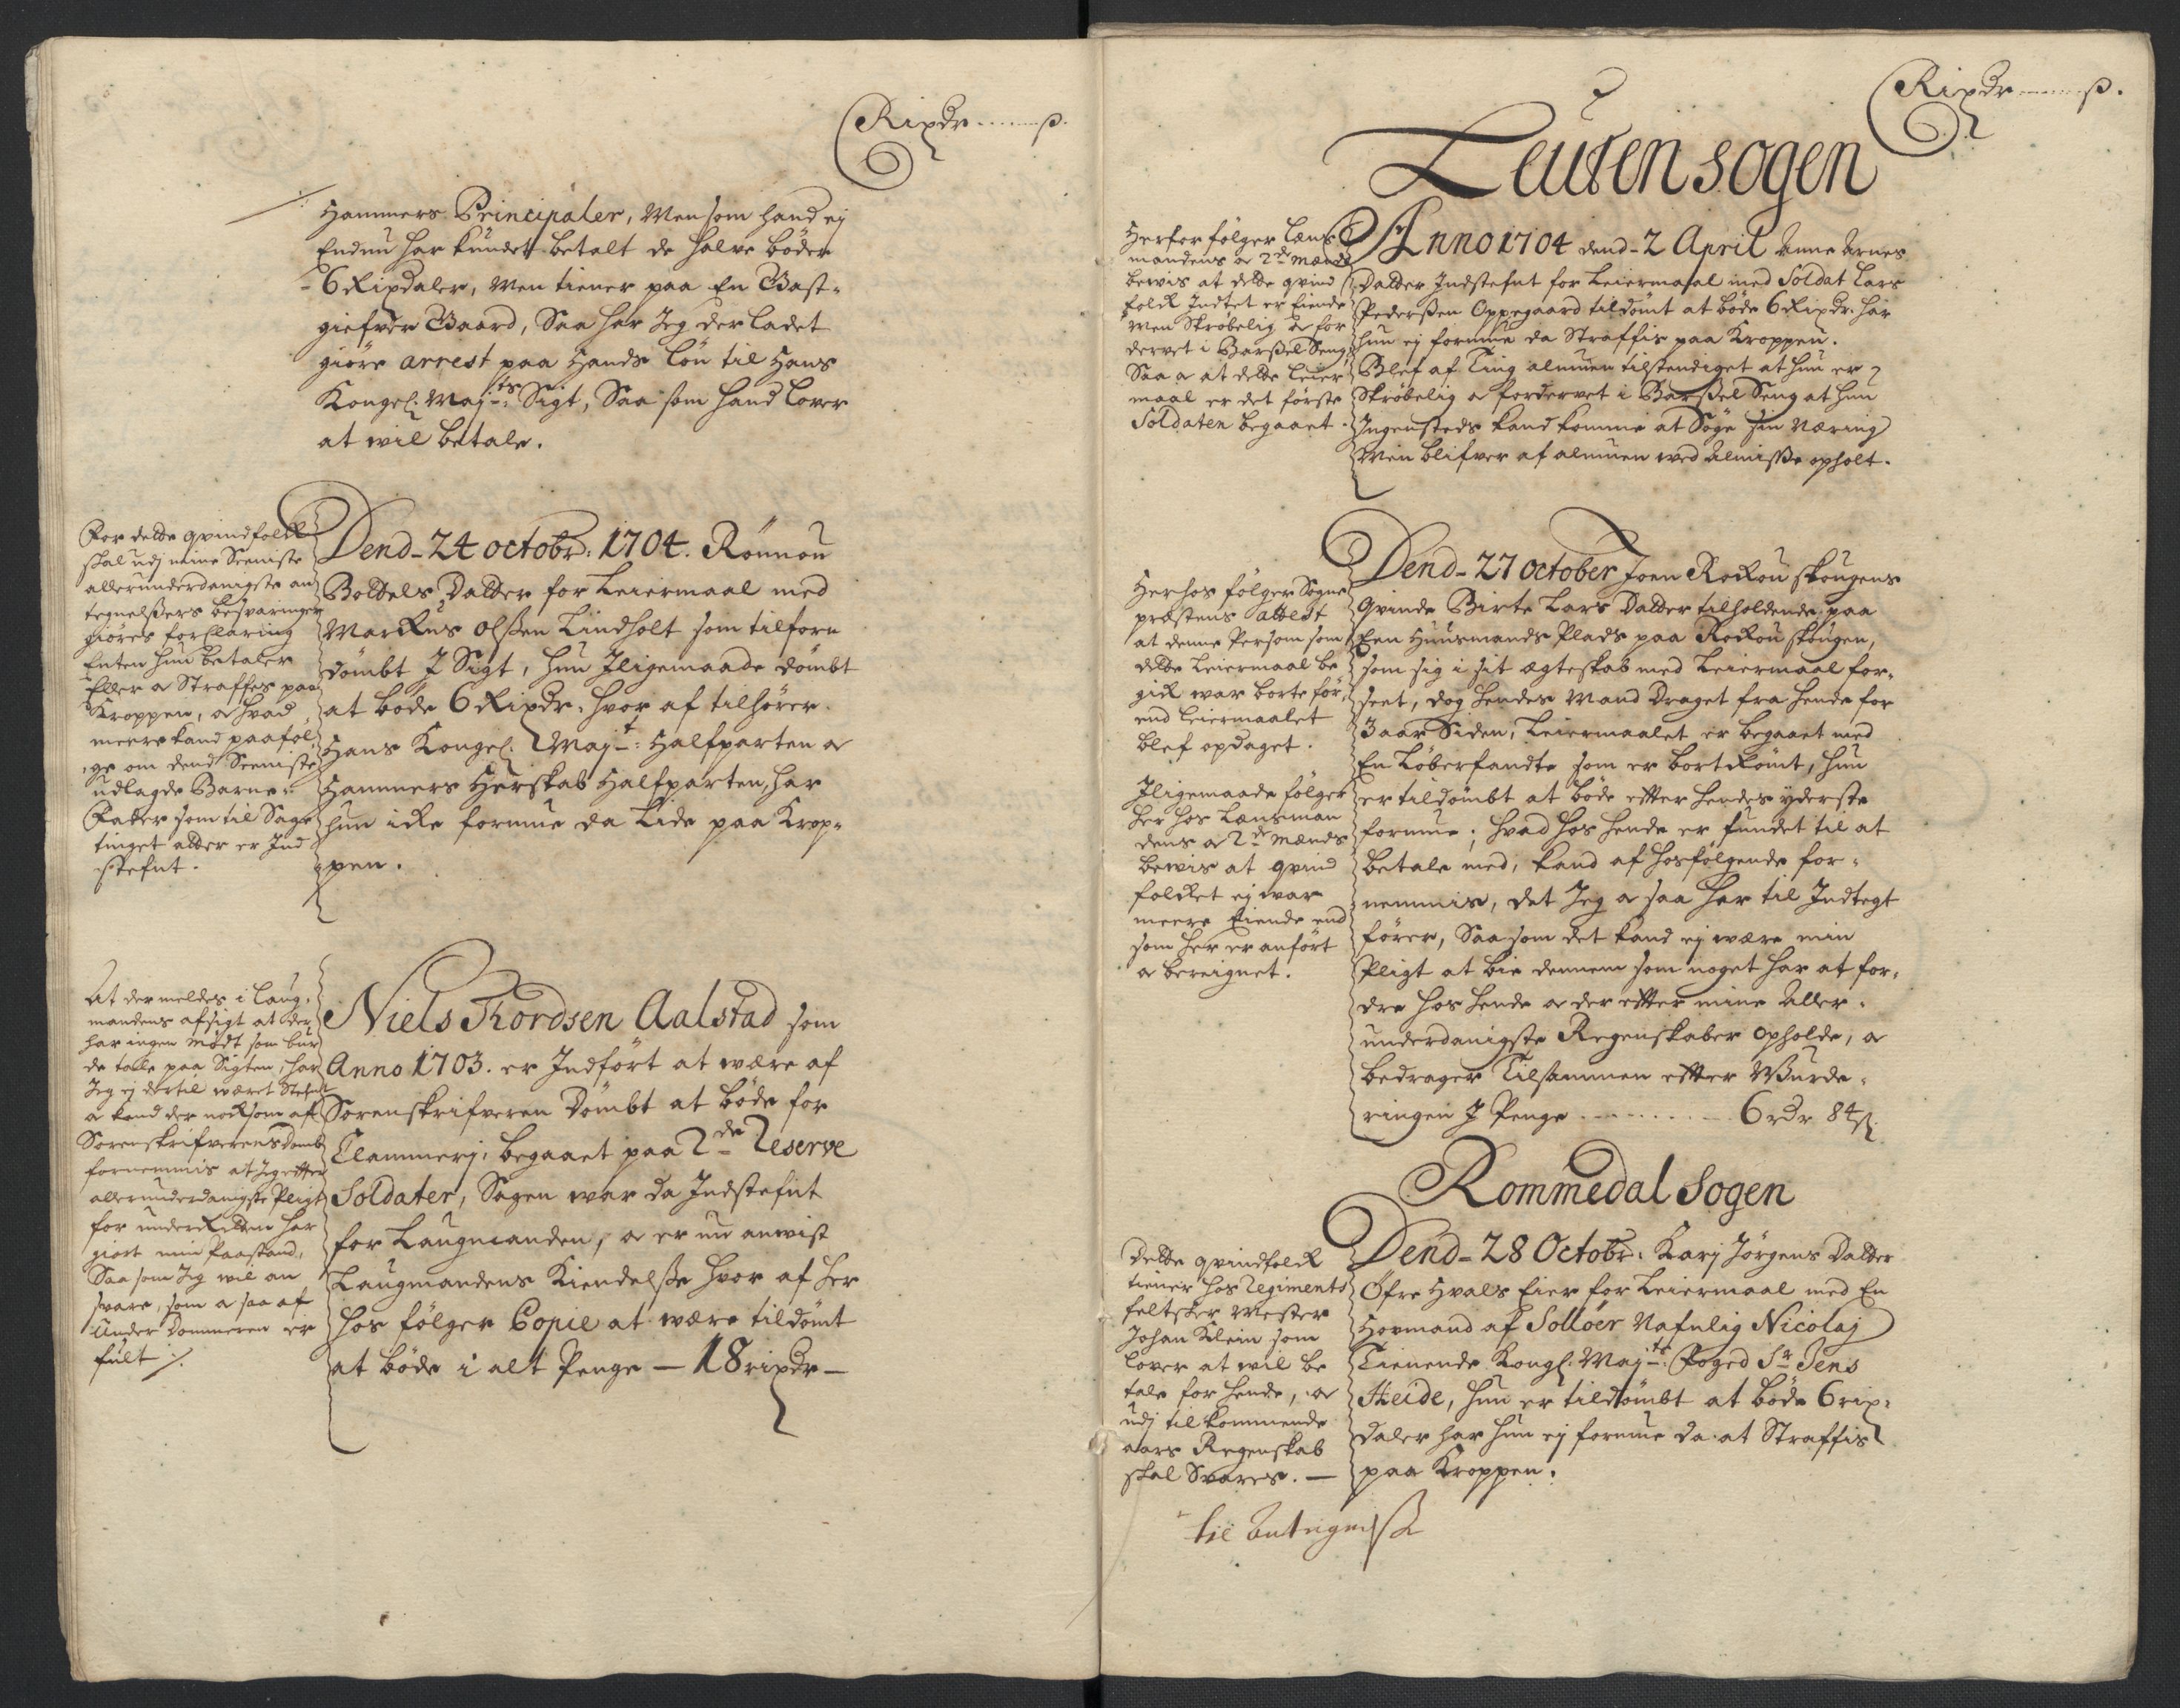 Rixdr ...... ß.
Hammers Principaler, Men som hand ej
Endnu har kundet betalt de halve bøder
- 6 Rixdaler, Men tiener paa En Gast-
gifver Gaard, Saa har Jeg der ladet
giøre arrest paa Hands løn til Hans
Kongel: Maj:ts Sigt, Saa som hand lover
at wil betale.
For dette qvindfolk
skal udj mine Seeniste
allerunderdanigste an
tegnelßers besvaringer
giøres forklaring
Enten hun betaler
Eller a Straffes paa
Kroppen, a hvad
meere kand paaføl
ge om dend Seeniste
udlagde Barne-
Fader som til Sage
tinget atter er Ind
stefnt.
Dend - 24 octobr: 1704. Rønnou
Bottels Datter for Leiermaal med
Markus olßen Lindholt som tilforn
dømbt J Sigt, hun Jligemaade dømbt
at bøde 6 Rixdr: hvor af tilhører
Hans Kongel: Maj:t: Halfparten a
Hammers Herskab Halfparten, har
hun icke formue da Lide paa Krop-
pen.
At der meldes i Laug-
mandens afsigt at der
har ingen Mødt som bur
de tale paa Sigten, har
Jeg ej dertil wæret Stefnt
a kand der noksom af
Sorenskrifverens Domb
fornemmis at Jeg efter
allerunderdanigste Pligt
for underRetten har
giort min Paastand,
Saa som Jeg wil an
svare, som a saa af
Under Dommeren er
fult ./.
Niels Thordsen Aalstad som
Anno 1703. er Indført at wære af
Sorenskrifveren Dømbt at bøde for
Clammerj, begaaet paa 2de Reserve
Soldater, Sagen war da Indstefnt
for Laugmanden, a er nu anwist
Laugmandens Kiendelße hvor af her
hos følger Copie at wære tildømt
at bøde i alt Penge — 18 rixdr —
Rixdr ...... ß.
Leuten sogen
Herfor følger Lens
mandens a 2de Mænds
bewis at dette qvind
folk Intet er Eiende
Men Skrøbelig a for
dervet i Barßel Seng,
Saa a at dette Leier
maal er det første
Soldaten begaaet.
Anno 1704 dend - 2 April Anne Arnes
Datter Indstefnt for Leiermaal med Soldat Lars
Pederßen Oppegaard tildømt at bøde 6 Rixdr. har
hun ej formue da Straffis paa Kroppen.
Blef af Ting almuen tilstendiget at hun er
Skrøbelig a fordervet i Barßel Seng at hun
Ingensteds kand komme at Søge sin Næring
Men blifver af almuen wed Almiße opholt.
Herhos følger Sogne
præstens attest
at denne Persom som
dette Leiermaal be
gik war borte før
end Leiermaalet
blef opdaget.
Jligemaade følger
her hos Lænsman
dens a 2de Mænds
bewis at qvind
folket ej war
meere Eiende end
som her er anført
a beregnet.
Dend - 27 October Joen Rokou skougens
Qvinde Birte Lars Datter tilholdende paa
Een Huusmands Plads paa Rokou skougen,
som sig i sit ægteskab med Leiermaal for-
seet, dog hendes Mand Draget fra hende for
3 aar Siden, Leiermaalet er begaaet med
En Løberfandte som er bortRømt, hun
er tildømbt at bøde efter hendes yderste
formue; hvad hos hende er fundet til at
betale med, kand af hosfølgende for-
nemmis, det Jeg a saa har til Indtegt
fører, Saa som det kand ej wære min
Pligt at bie dennem som noget har at for-
dre hos hende a der efter mine Aller-
underdanigste Regenskaber Opholde, a
bedrager Tilsammen efter Wurde-
ringen J Penge ........ 6 rdr 84 ß
Rommedal Sogen
Dette qvindfolk
tiener hos Regiments
feltskier Mester
Johan Klein som
lover at wil be
tale for hende, a
udj tilkommende
aars Regenskab
skal Svares. —
Dend - 28 Octobr: Karj Jørgens Datter
Øfre Hvals Eier for Leiermaal med En
Hovmand af Solloer Nafnlig Nicolaj
Tienende Kongl: Maj:ts: Foged Sr Jens
Heide, hun er tildømbt at bøde 6 rix-
daler har hun ej formue da at Straffis
paa Kroppen.
til Antegnelße